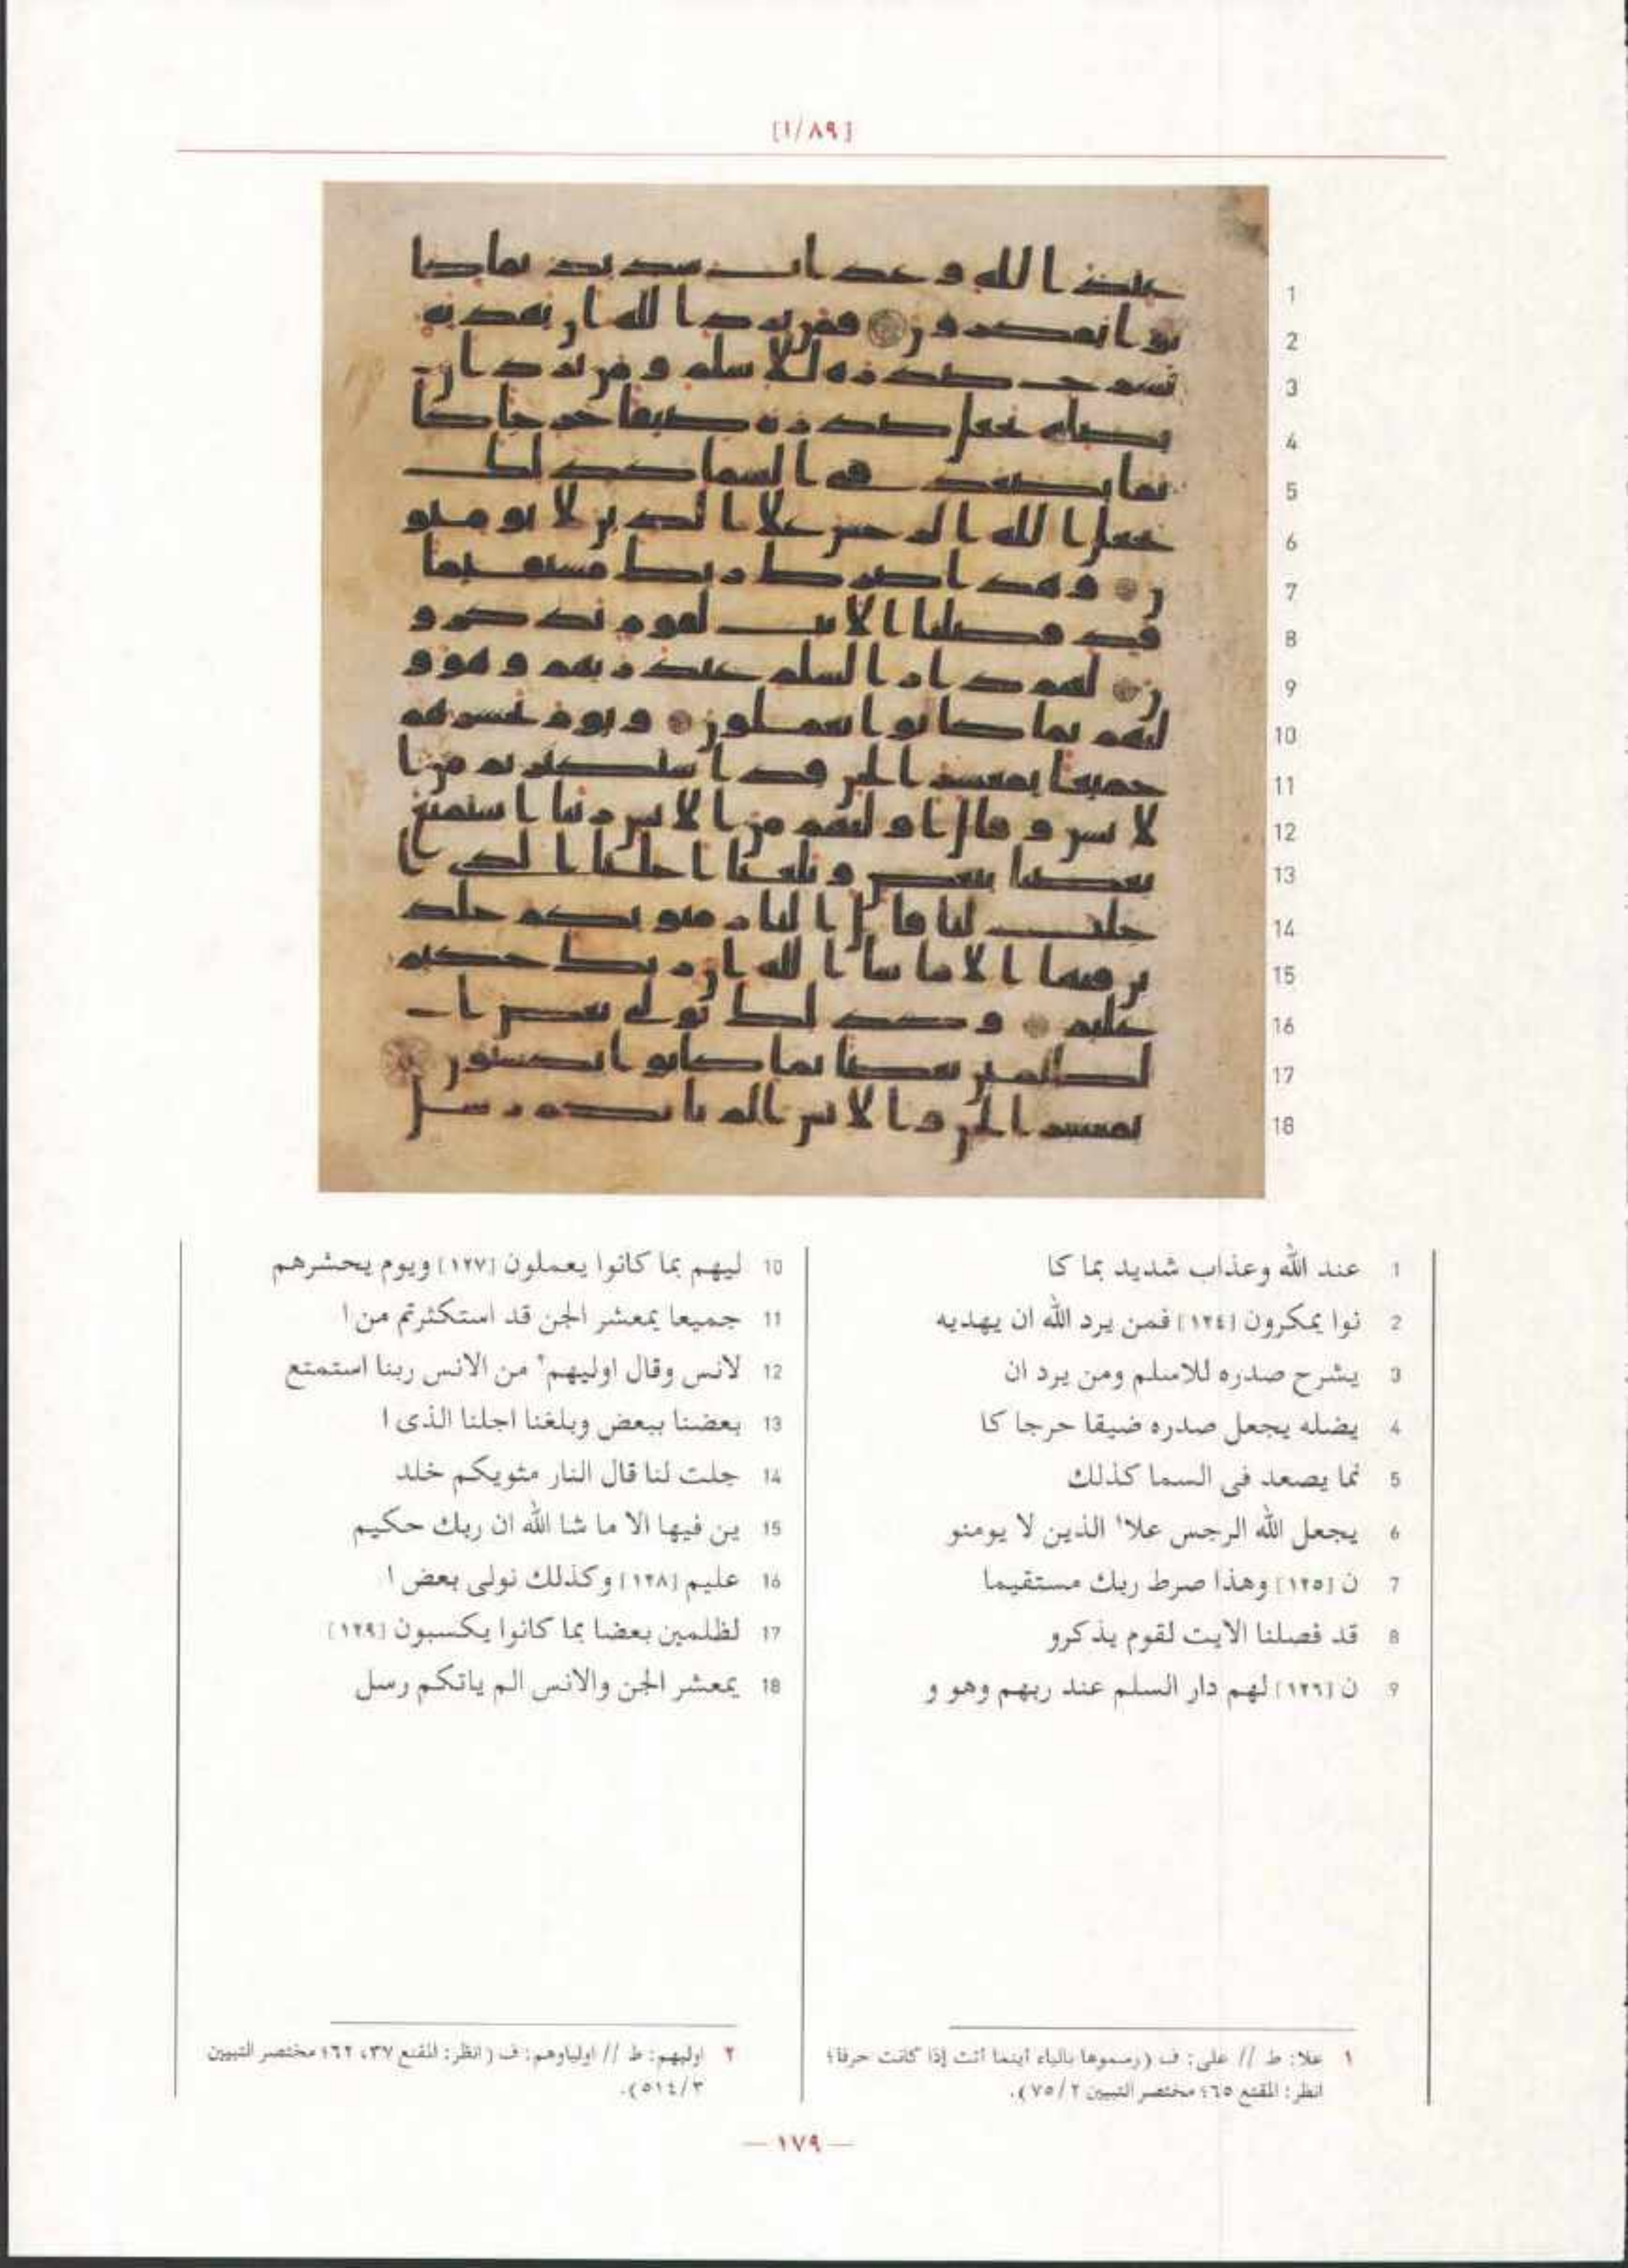 [١/٨٩]
1 عند الله وعذاب شديد بما كا
2 نوا يمكرون [١٢٤] فمن يرد الله ان يهديه
3 يشرح صدره للاسلم ومن يرد ان
4 يضله يجعل صدره ضيقا حرجا كا
5 نما يصعد فى السما كذلك
6 يجعل الله الرجس علا١ الذين لا يومنو
7 ن [١٢٥] وهذا صرط ربك مستقيما
8 قد فصلنا الايت لقوم يذكرو
9 ن [١٢٦] لهم دار السلم عند ربهم وهو و
10 ليهم بما كانوا يعملون [١٢٧] ويوم يحشرهم
11 جميعا يمعشر الجن قد استكثرتم من ا
12 لانس وقال اوليهم٢ من الانس ربنا استمتع
13 بعضنا ببعض وبلغنا اجلنا الذى ا
14 جلت لنا قال النار مثويكم خلد
15 ين فيها الا ما شا الله ان ربك حكيم
16 عليم [١٢٨] وكذلك نولى بعض ا
17 لظلمين بعضا بما كانوا يكسبون [١٢٩]
18 يمعشر الجن والانس الم ياتكم رسل
١ علا: ط // على: ف (رسموها بالياء أينما أتت إذا كانت حرفا؛
انظر: المقنع ٦٥؛ مختصر التبيين ٧٥/٢).
٢ اوليهم: ط // اولياوهم: ف (انظر: المقنع ٣٧، ٦٢؛ مختصر التبيين
٥١٤/٣).
— ١٧٩ —